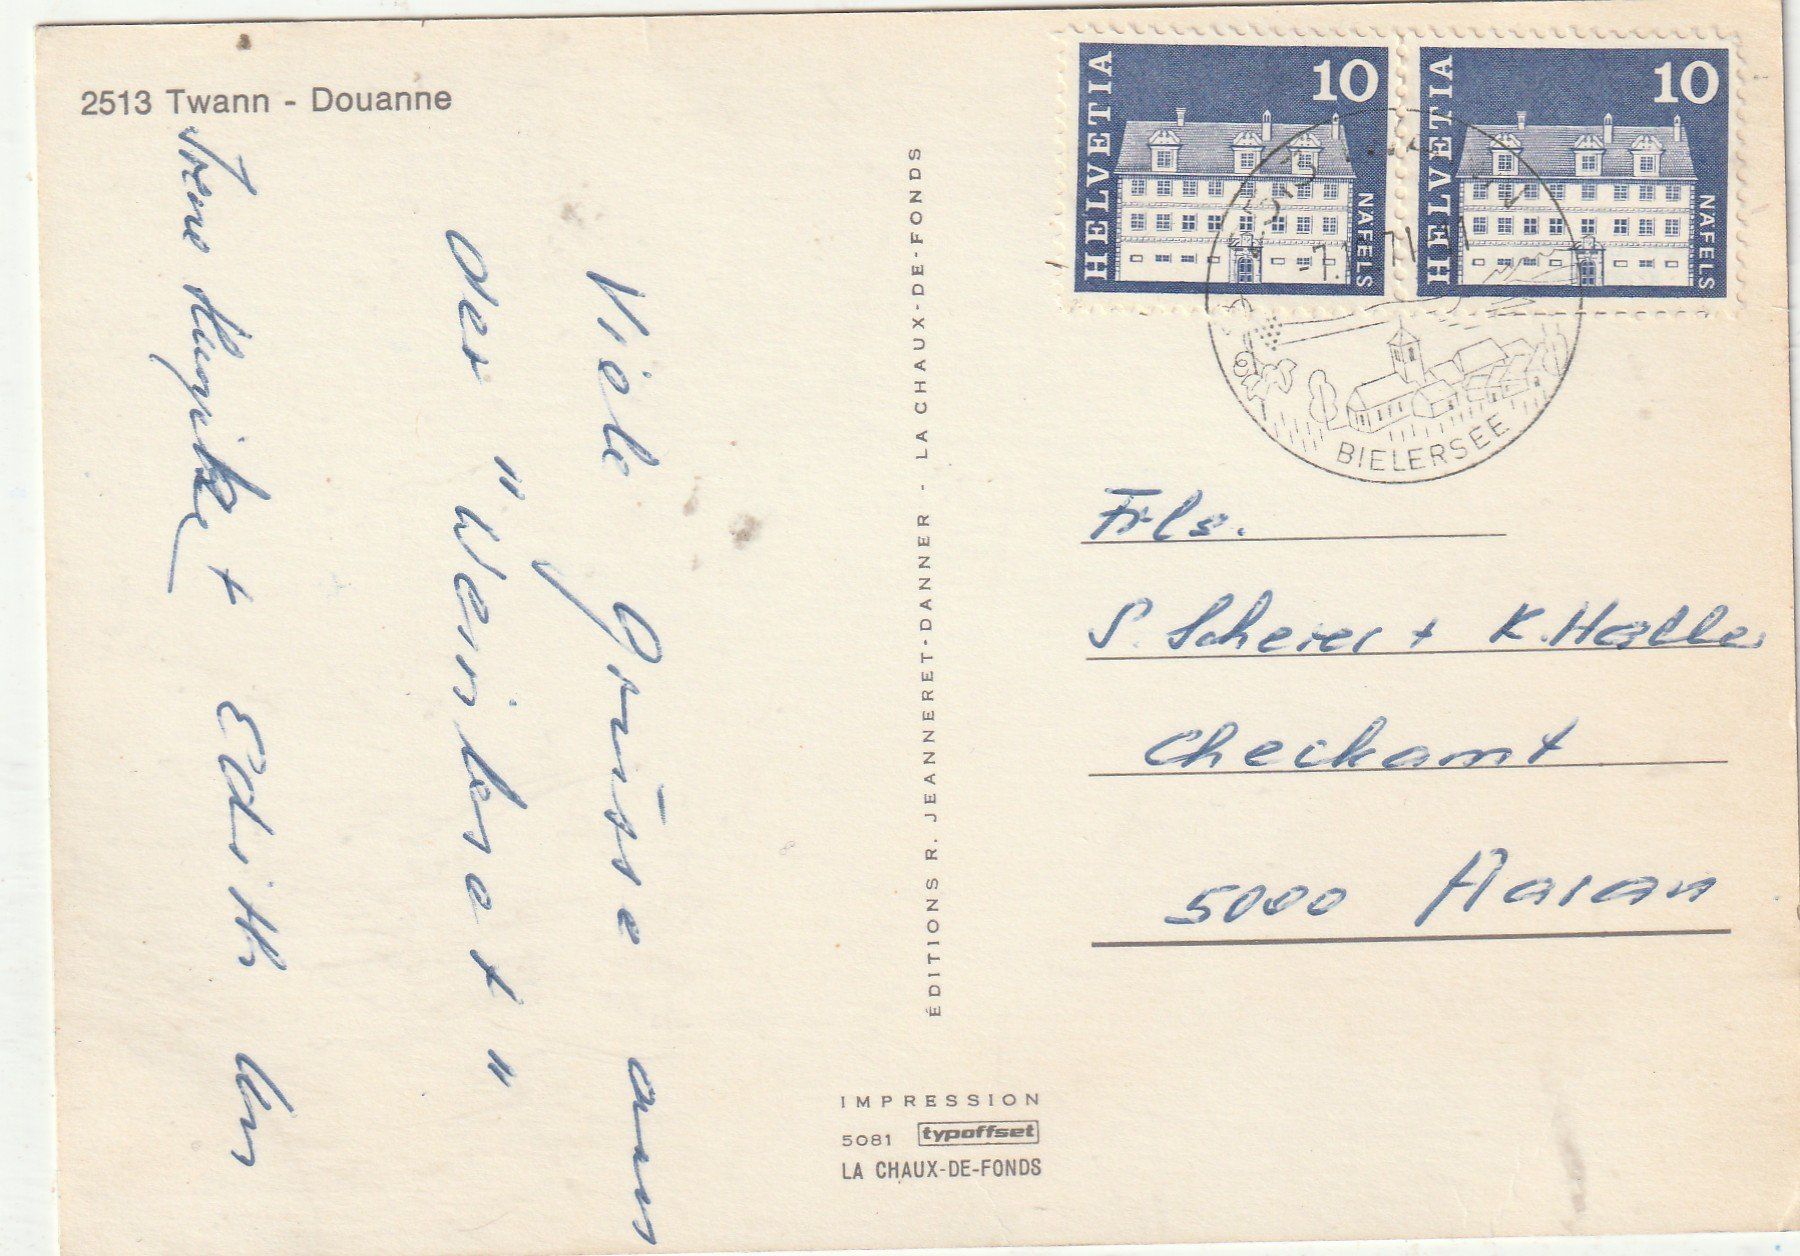 2513 Twann - Douanne
Viele Grüsse aus
der "Weinkret"
+ Edith
ÉDITIONS R. JEANNERET-DANNER - LA CHAUX-DE-FONDS
IMPRESSION
5081 typoffset
LA CHAUX-DE-FONDS
HELVETIA 10 NÄFELS
HELVETIA 10 NÄFELS
BIELERSEE
Frls.
S. Scherer + K. Haller
Checkamt
5000 Aarau